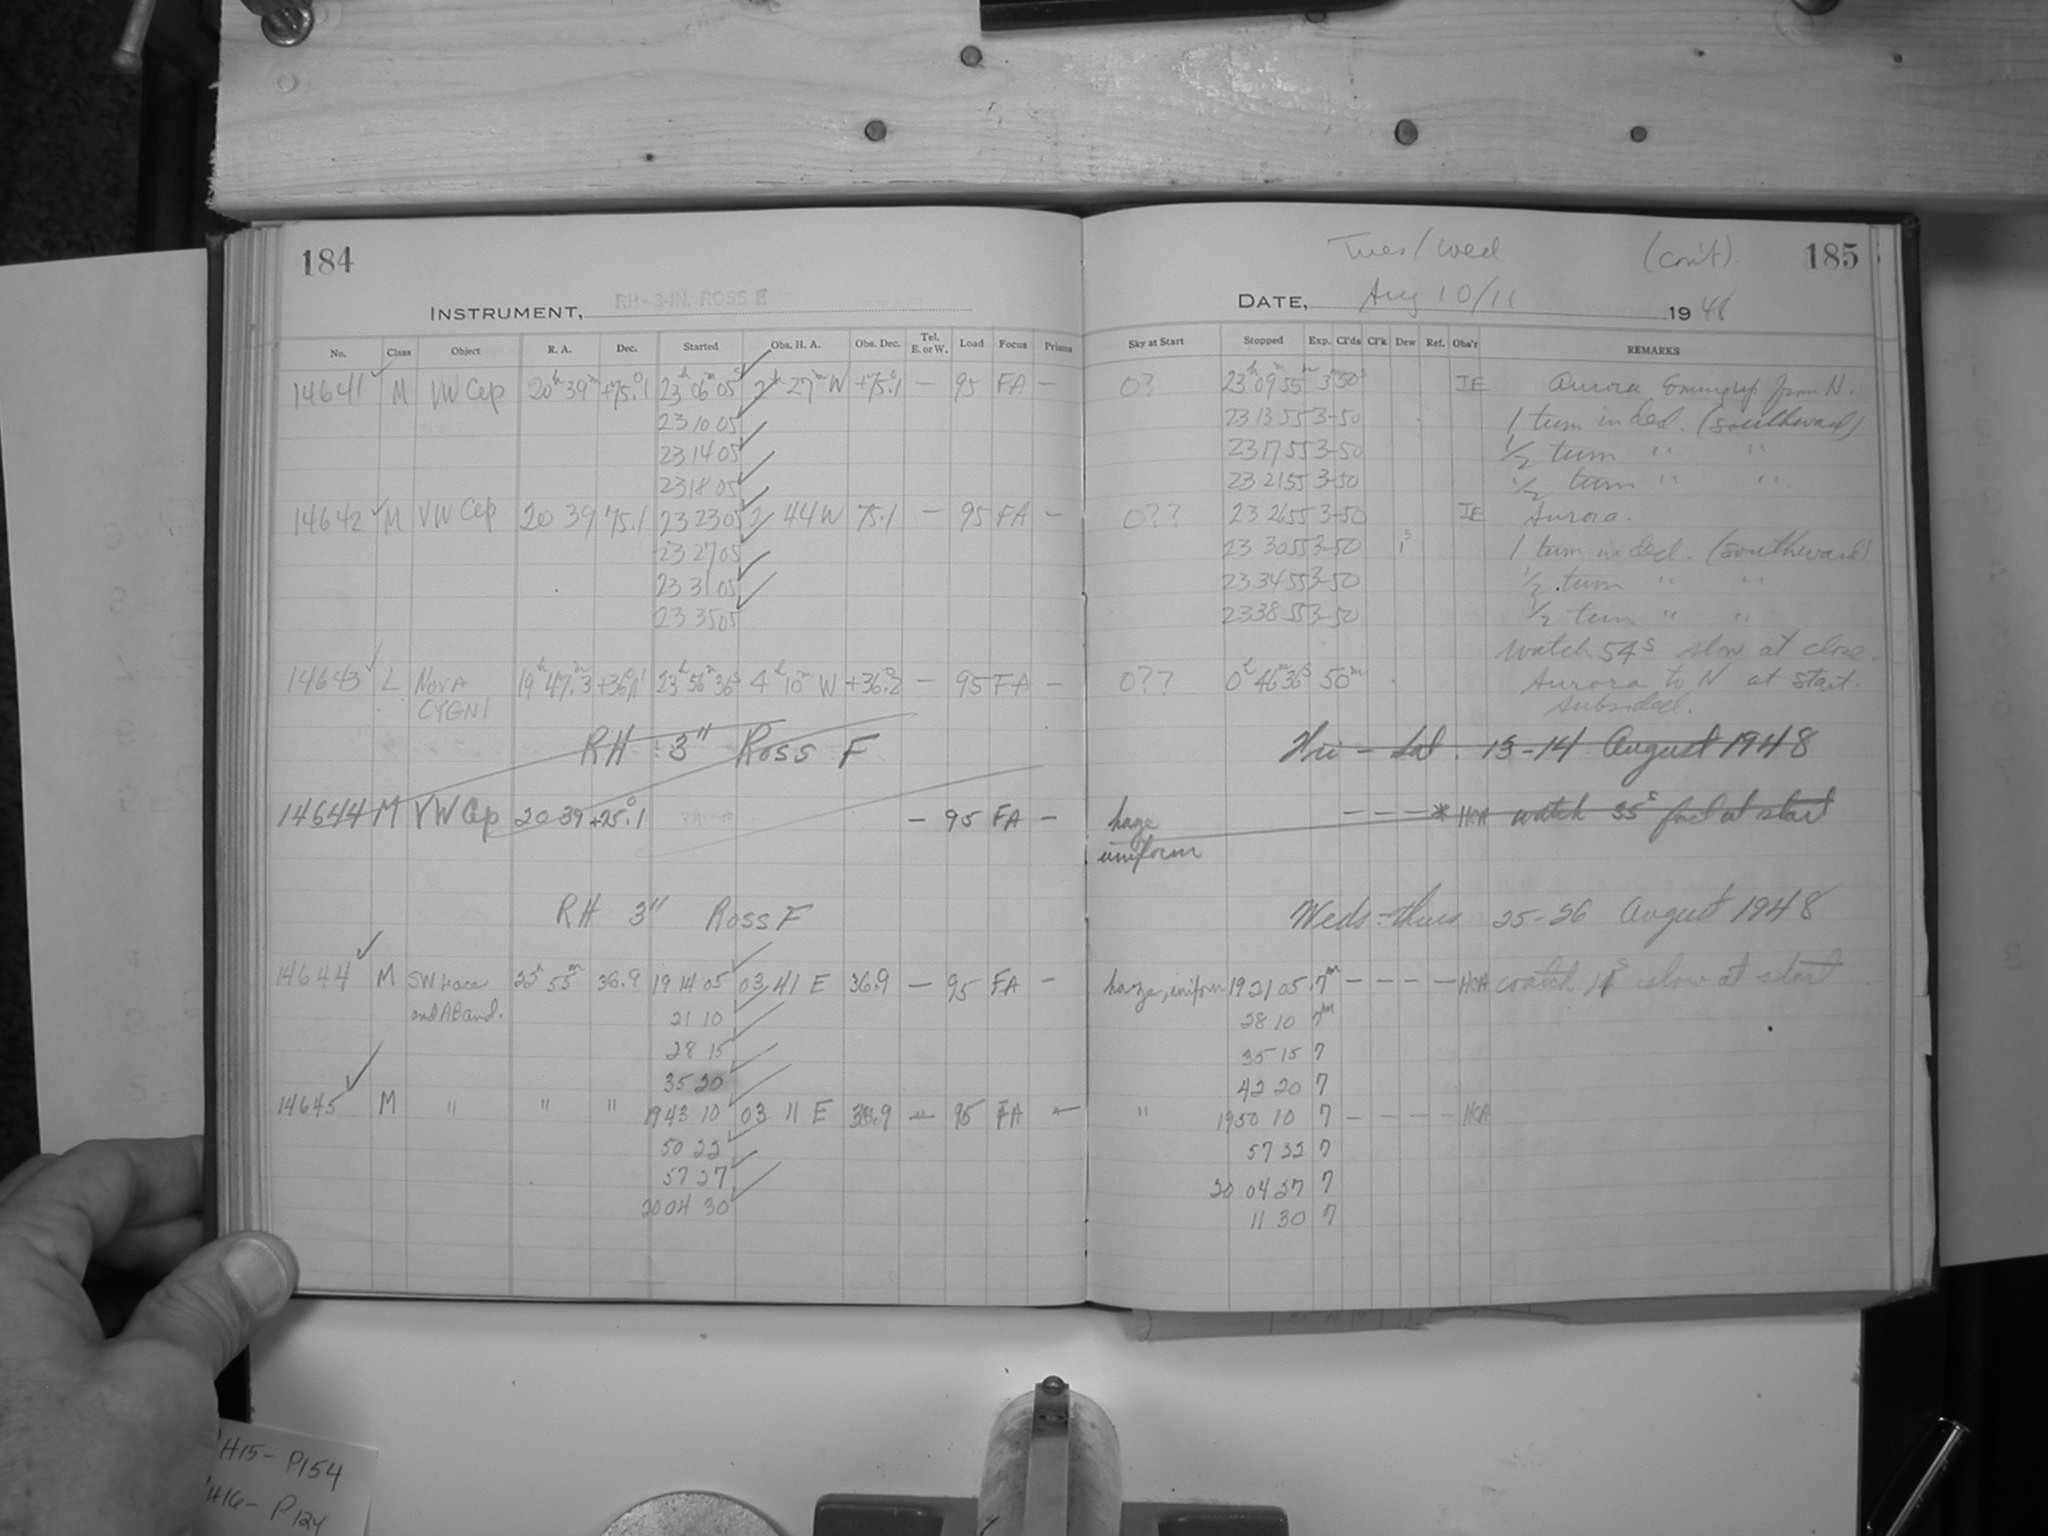 184
INSTRUMENT, RH-3-IN. ROSS F
No. Class Object R. A. Dec. Started Obs. H. A. Obs. Dec. Tel. E. or W. Load Focus Prisms
14641 M VW Cep 20h 39m +75.°1 23h 06m 05s 2h 27m W +75.°1 — 95 FA —
23 10 05
23 14 05
23 18 05
14642 M VW Cep 20 39 75.1 23 23 05 2 44 W 75.1 — 95 FA —
23 27 05
23 31 05
23 35 05
14643 L NOVA 19h 47m.3 23h 56m 36s 4h 10m W +36.°2 — 95 FA —
CYGNI
RH 3" Ross F
14644 M VW Cep 20 39 +75.°1 — 95 FA —
RH 3" Ross F
14644 M SW Lace 55m 36.9 19 14 05 03 41 E 36.9 — 95 FA —
and AB And.
21 10
28 15
35 20
14645 M " " " 19 43 10 03 11 E 36.9 — 95 FA —
50 22
57 27
20 04 30
Tues/Wed (con't). 185
DATE, Aug 10/11 1948
Sky at Start Stopped Exp. Cl'ds Cl'k Dew Ref. Obs'r REMARKS
0? 23h 09m 55s 3m 50s IE Aurora coming up from N.
23 13 55 3-50 1 turn in decl. (southward)
23 17 55 3-50 1/2 turn " "
23 21 55 3-50 1/2 turn " "
0?? 23 26 55 3-50 IE Aurora.
23 30 55 3-50 1s 1 turn in decl. (southward)
23 34 55 3-50 1/2 turn " "
23 38 55 3-50 1/2 turn " "
Watch 54s slow at close.
0?? 0h 46m 36s 50m Aurora to N at start.
Subsided.
Fri - Sat. 13-14 August 1948
haze — — — * HCA watch 35s fast at start
uniform
Weds-Thurs 25-26 August 1948
haze, uniform 19 21 05 7m — — — — HCA watch slow at start
28 10 7m
35 15 7
42 20 7
" 19 50 10 7 — — — — HCA
57 22 7
20 04 27 7
11 30 7
H15- P154
H16- P124